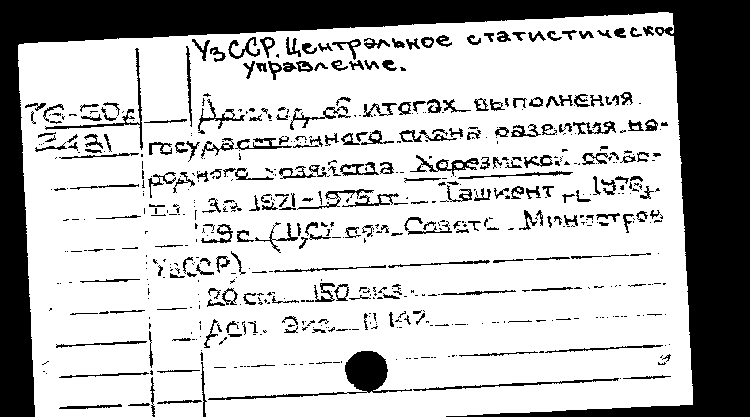 УзССР. Центральное статистическое
управление.
76-50д Доклад об итогах выполнения
2431 государственного плана развития на-
родного хозяйства Хорезмской облас-
ти за 1971-1975 гг. Ташкент, 1976.
29 с. (ЦСУ при Совете Министров
УзССР)
20 см 150 экз.
Дсп. Экз. № 147